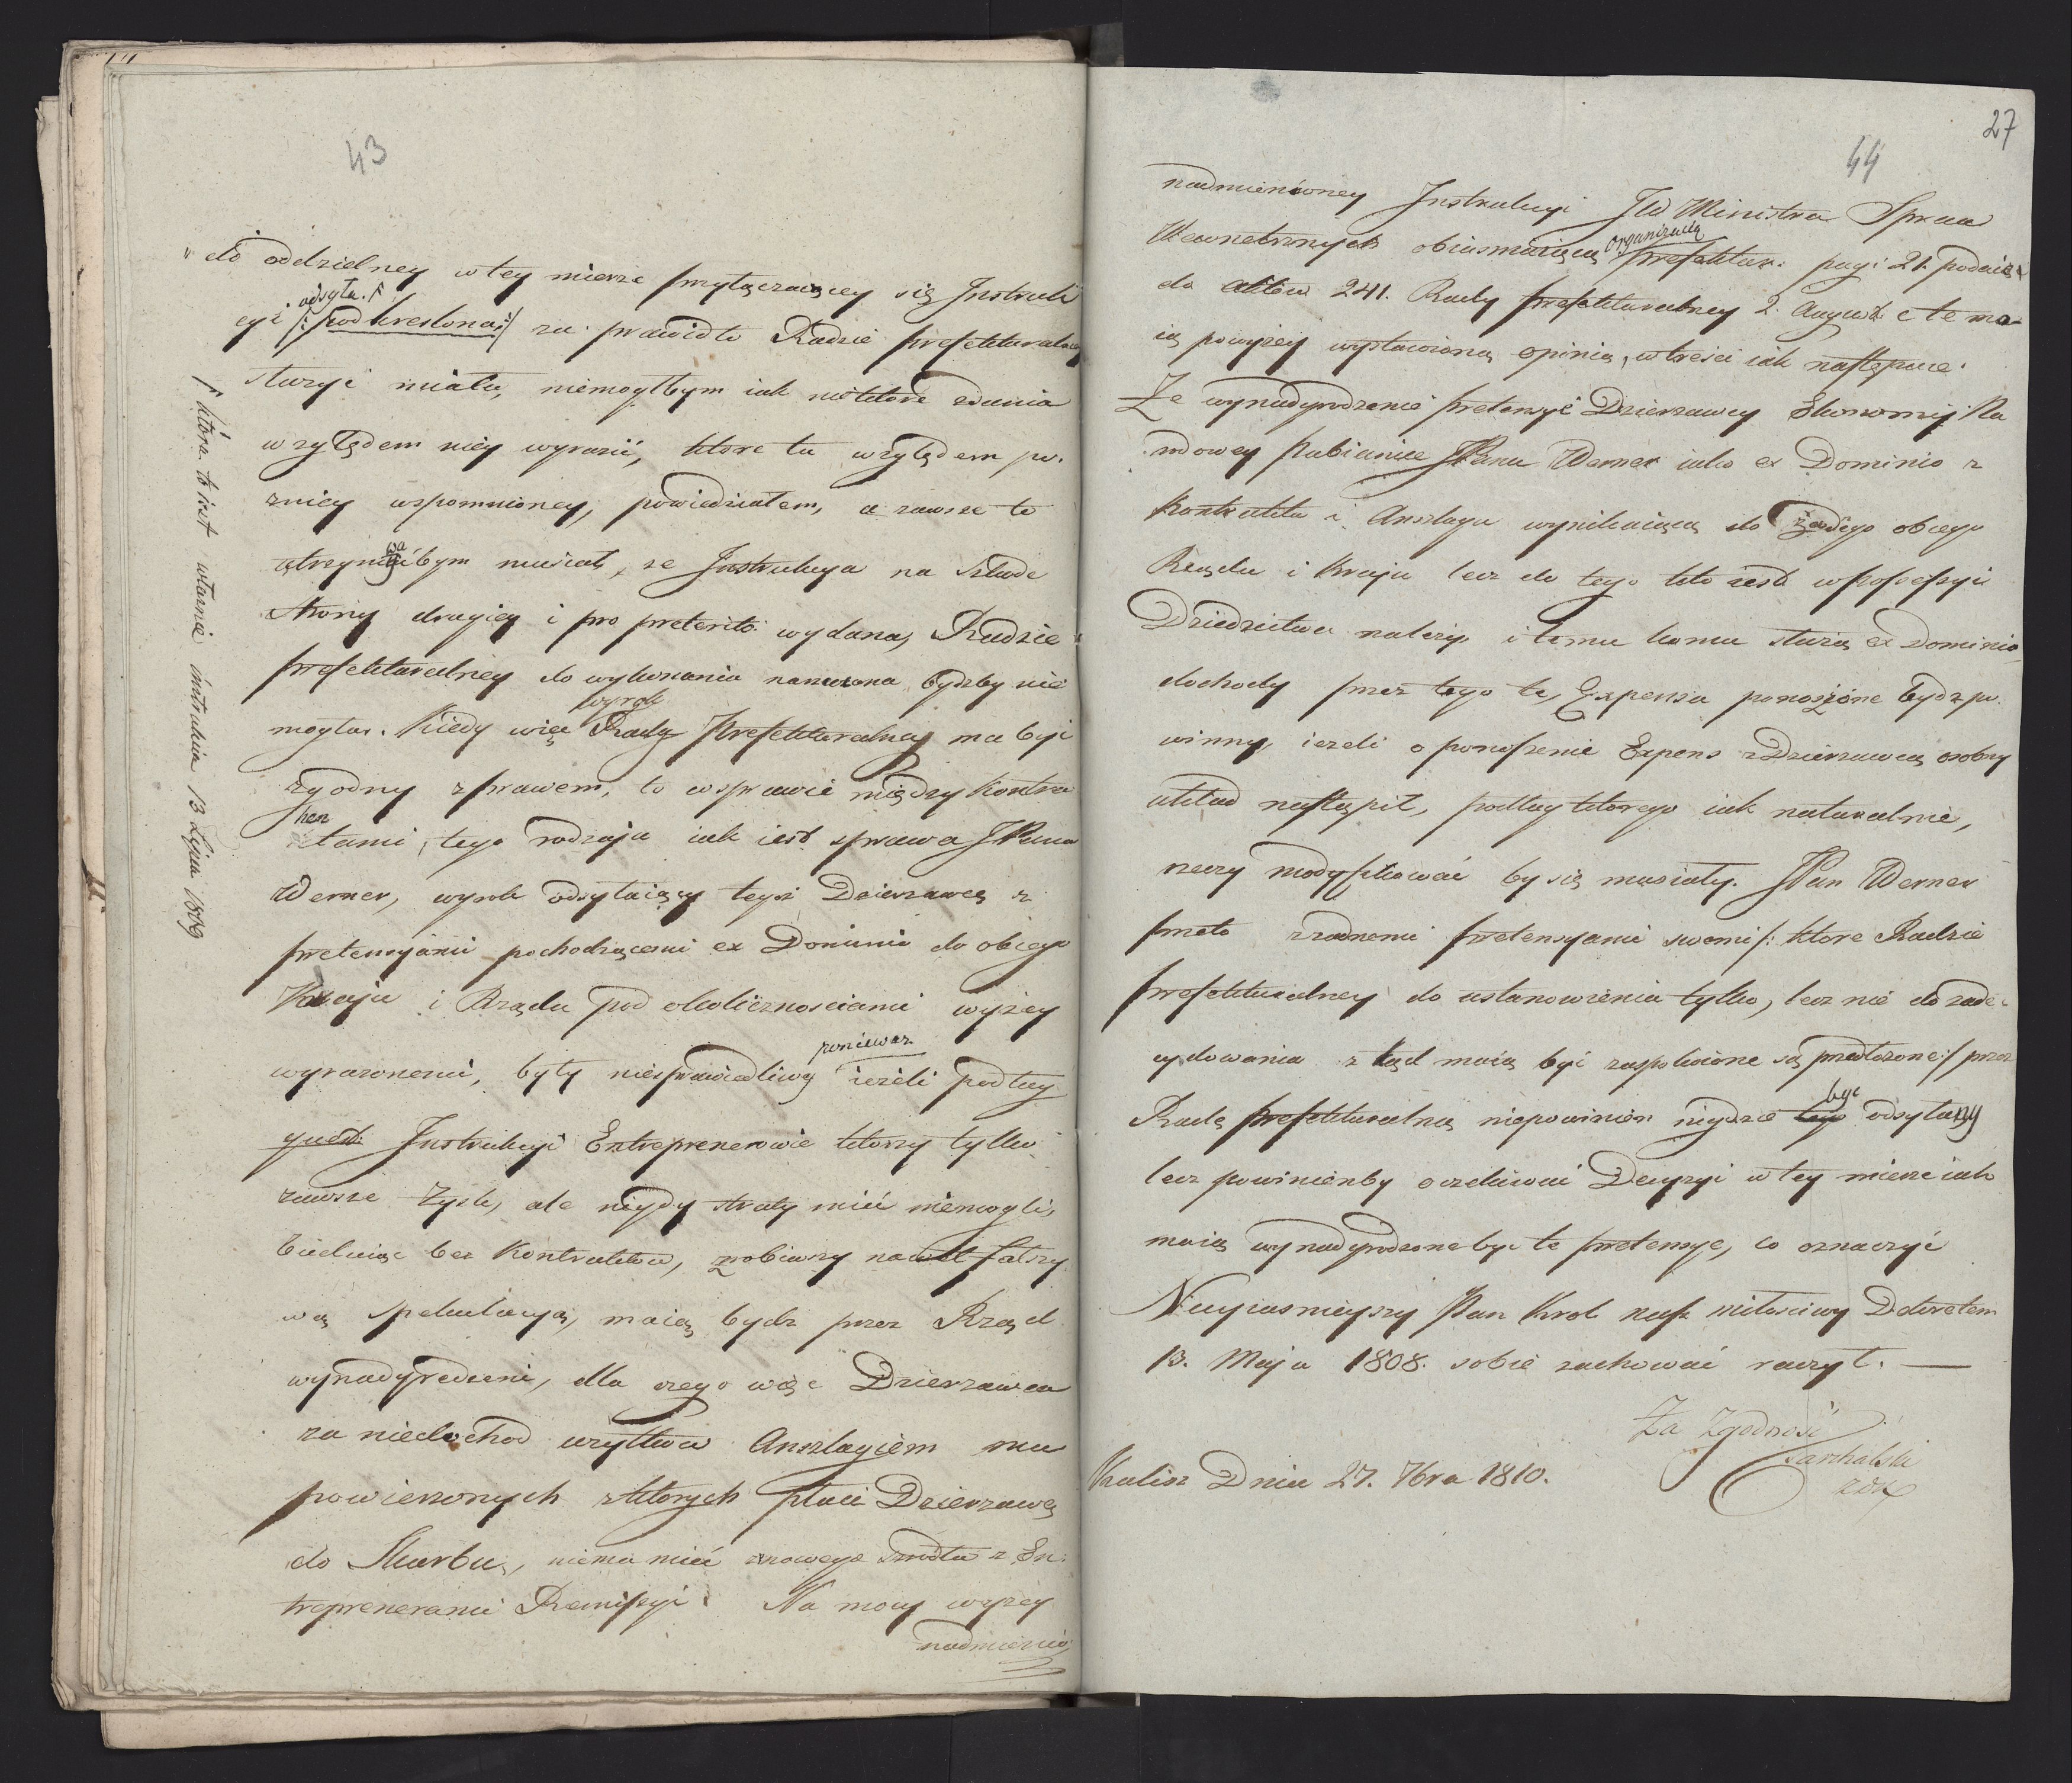 43
" do oddzielney w tey mierze przyłączaiącey się Instruk
odsyła. Γ
cyi /: pod kreslona :/ za prawidło Radzie prefekturalney
służyć miała, niemogłbym iak niektóre zdania
względem niey wyrazić, ktore tu względem po.
zniey wspomnioney, powiedziałem, a zawsze to
wa
utrzymićbym musiał, ze Instrukcya na szkodę
strony drugiey i pro preterito wydana, Radzie
prefekturalney do wykonania naruczona bydzby nie
wyrok
mogła. Kiedy więc Rady Prefekturalney ma być
zgodny z prawem, to w sprawie między Kontra
hen
tami, tego rodzaju iak iest sprawa JPana
Werner, wyrok odsyłaiący tegoż Dzierzawcę z
pretensyami pochodzącemi ex Dominio do obcego
Kraju i Rządu pod okolicznosciami wyzey
poniewaz
wyrazonemi, były niesprawiedliwy iezeli podług
quest: Instrukcyi Entreprenerowie ktorzy tylko
zawsze zysk, ale nigdy straty mieć niemogli,
będąc bez Kontraktow, zrobiwszy nawet fałszy
wą spekulacyą, maią bydz przez Rząd
wynadgrodzeni, dla czego więc Dzierzawca
za niedochod uzytkow Anszlagiem mu
powierzonych z ktorych płaci Dzierzawę
do Skarbu, niema mieć rownego zrodła z En
treprenerami Remissyi. Na mocy wyzey
nadmienio,
Γ która to iest własnie instrukcia 13 Lipca 1809
27
44
nadmienioney Instrukcyi JW Ministra Spraw
organizacią
Wewnetrznych obiasniaiącą prefektur: pag: 21. podaię
do aktow 241. Rady prefekturalney 2. August: c te mo
ią powyzey wystawioną opinią, w tresci iak następuie.
Ze wynadgrodzenie pretensyi Dzierzawcy Ekonomij Na
rodowey Pabianice JPana Werner iako ex Dominio z
Kontraktu i Anszlagu wynikaiącą do żadnego obcego
Rządu i Kraju lecz do tego kto iest w possessyi
Dziedzictwa nalezy i temu komu służą ex Dominio
dochody przez tego te Expensa ponoszone bydz po.
winny, iezeli o ponoszenie Expens z Dzierzawcą osobny
układ nastąpił, podług ktorego iak naturalnie,
rzeczy modyfikować by się musiały. JPan Werner
przeto z zadnemi pretensyami swemi /: ktore Radzie
prefekturalney do ustanowienia tylko, lecz nie do zade.
cydowania z kąd maią być zaspokoione są przedłozone :/ przez
być
Radę prefekturalną niepowinien nigdzie odsyłany
lecz powinienby oczekiwać Decyzyi w tey mierze iak
maią wynadgrodzone być te pretensye, co oznaczyć
Nayiasnieyszy Pan Krol nasz miłosciwy Dekretem
13. Maja 1808. sobie zachować raczył. —
Za Zgodność
Kalisz Dnia 27. 7bra 1810.